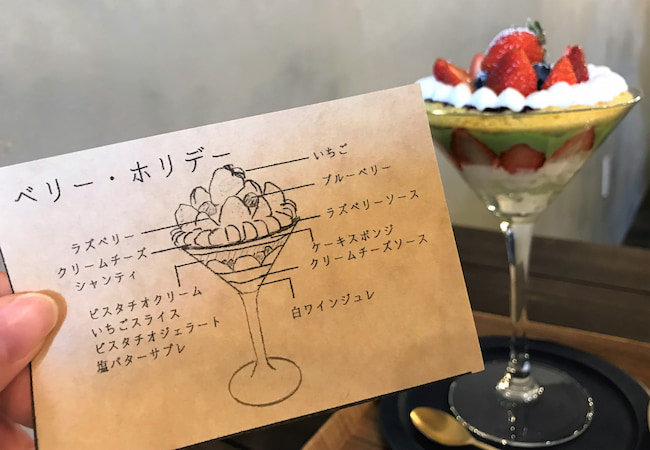 ベリー・ホリデー
いちご
ブルーベリー
ラズベリーソース
ラズベリー
クリームチーズ
シャンティ
ケーキスポンジ
クリームチーズソース
ピスタチオクリーム
いちごスライス
ピスタチオジェラート
塩バターサブレ
白ワインジュレ